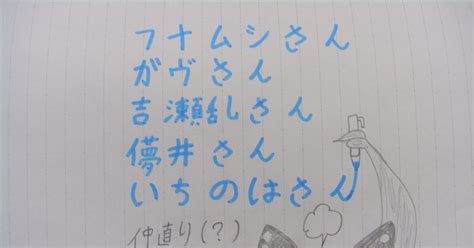 フナムシさん
がヴさん
吉瀬乱さん
儚井さん
いちのはさん
仲直り(?)